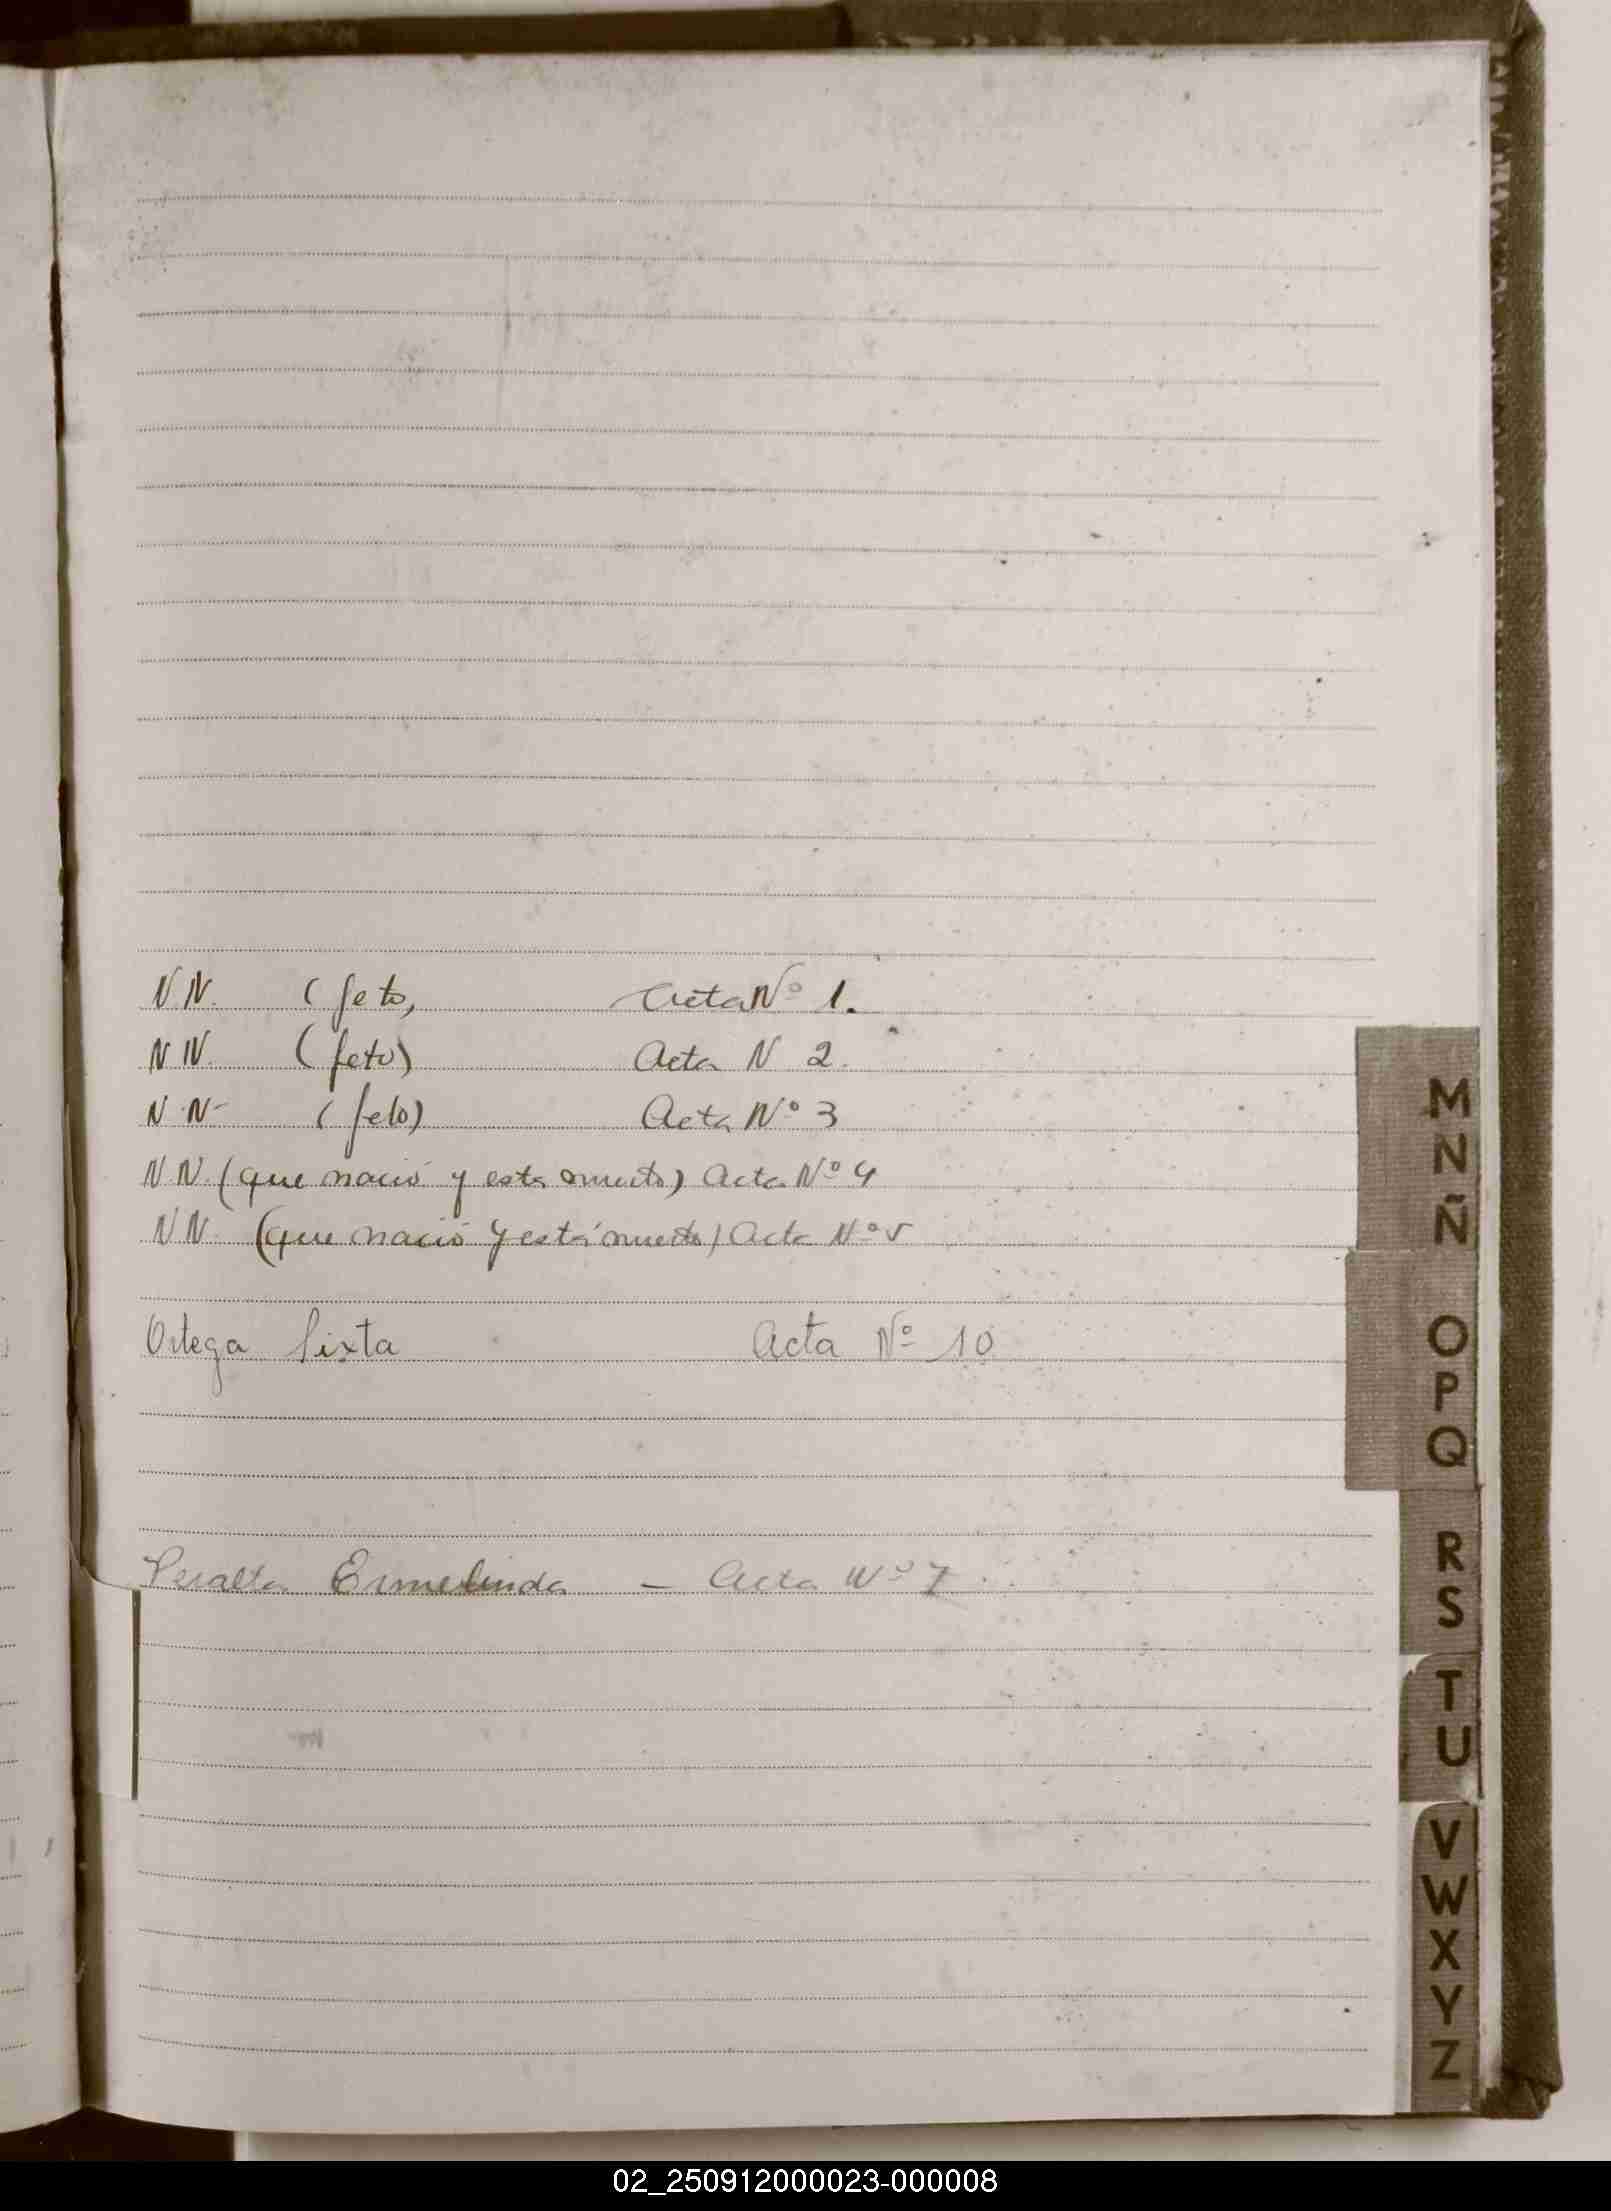 N.N. (feto, Acta Nº 1.
N N. (feto) Acta N 2.
N.N- (feto) Acta Nº 3
N.N. (que nació y esta muerto) Acta Nº 4
N N. (que nació y está muerto) Acta Nº 5
Ortega Sixta Acta Nº 10
Peralta Ermelinda – Acta Nº 7
M
N
Ñ
O
P
Q
R
S
T
U
V
W
X
Y
Z
02_250912000023-000008